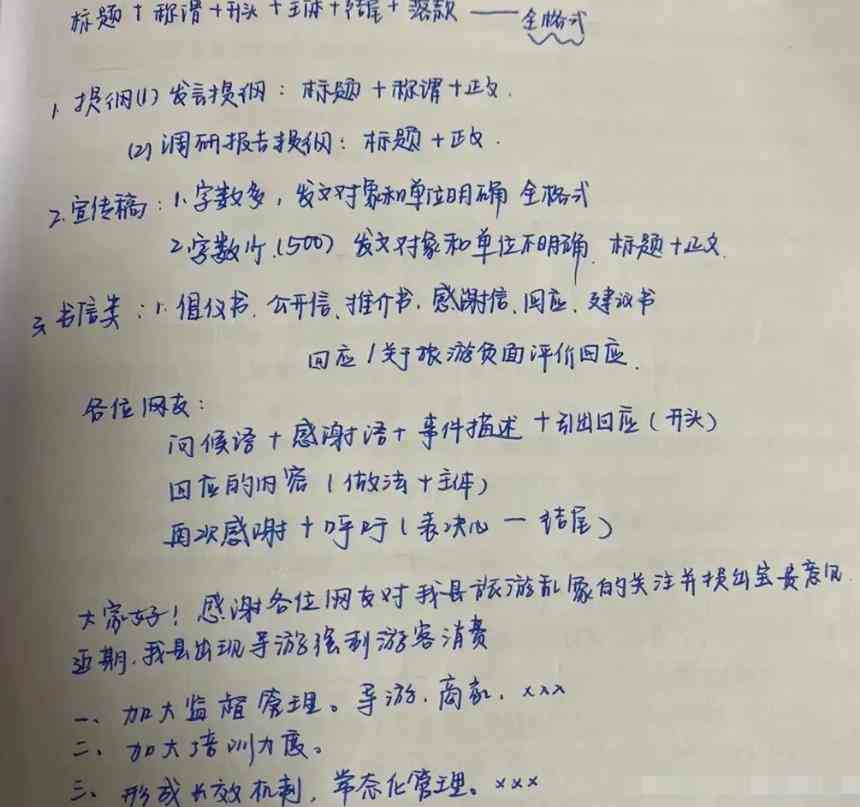 标题+称谓+开头+主体+结尾+落款 —— 全格式
1. 提纲(1) 发言提纲：标题+称谓+正文.
(2) 调研报告提纲：标题+正文.
2. 宣传稿：1.字数多，发文对象和单位明确 全格式
2.字数少.(500) 发文对象和单位不明确. 标题+正文.
3. 书信类：1.倡仪书. 公开信、推介书. 感谢信、回应、建议书
回应/关于旅游负面评价回应.
各位网友：
问候语+感谢语+事件描述+引出回应(开头)
回应的内容(做法+主体)
再次感谢+呼吁(表决心—结尾)
大家好！感谢各位网友对我县旅游乱象的关注并提出宝贵意见.
近期.我县出现导游强制游客消费
一、加大监督管理。导游.商家. xxx
二、加大培训力度。
三、形成长效机制，常态化管理。xxx